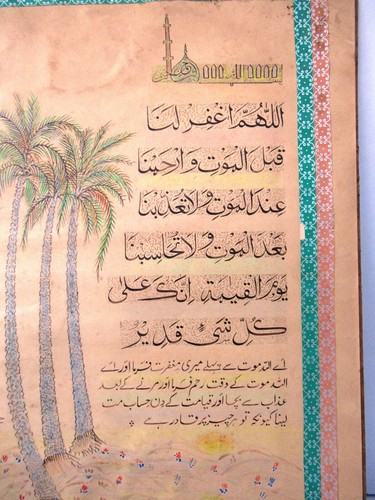 اللهم اغفر لنا
قبل الموت وارحمنا
عند الموت ولا تعذبنا
بعد الموت ولا تحاسبنا
يوم القيمة انك على
كل شئ قدير
اے اللہ موت سے پہلے میری مغفرت فرما اور اے
اللہ موت کے وقت رحم فرما اور مرنے کے بعد
عذاب سے بچا اور قیامت کے دن حساب مت
لینا کیونکہ تو ہر چیز پر قادر ہے